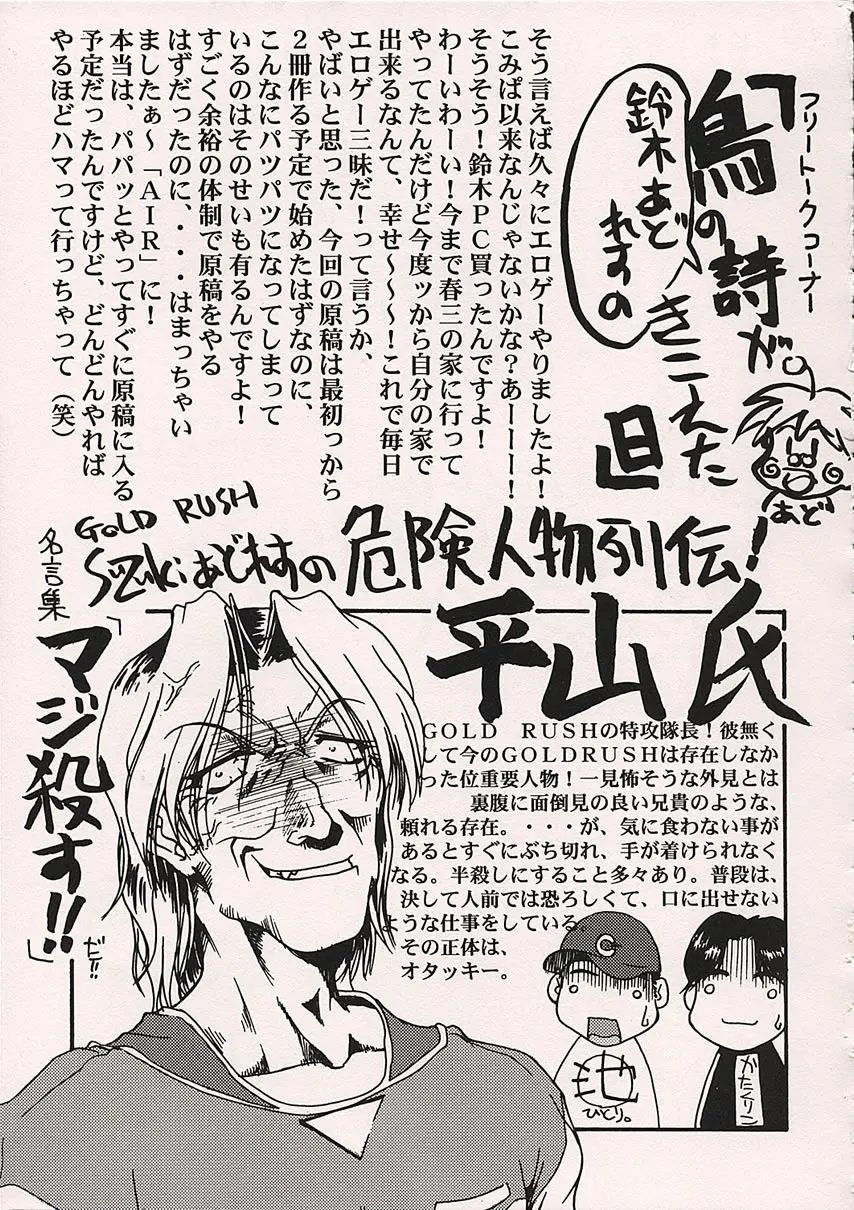 フリートークコーナー
「鳥の詩が。
きこえた
鈴木あど
れすの
回
あど
そう言えば久々にエロゲーやりましたよ！
こみぱ以来なんじゃないかな？あーーー！
そうそう！鈴木ＰＣ買ったんですよ！
わーいわーい！今まで春三の家に行って
やってたんだけど今度ッから自分の家で
出来るなんて、幸せ～～～！これで毎日
エロゲー三昧だ！って言うか、
やばいと思った、今回の原稿は最初っから
２冊作る予定で始めたはずなのに、
こんなにパツパツになってしまって
いるのはそのせいも有るんですよ！
すごく余裕の体制で原稿をやる
はずだったのに、・・・はまっちゃい
ましたぁ～「ＡＩＲ」に！
本当は、パパッとやってすぐに原稿に入る
予定だったんですけど、どんどんやれば
やるほどハマって行っちゃって（笑）
GOLD RUSH
Suzukiあどれすの危険人物列伝！
平山氏
名言集
「マジ殺す!!」
だ!!
ＧＯＬＤ ＲＵＳＨの特攻隊長！彼無く
して今のＧＯＬＤＲＵＳＨは存在しなか
った位重要人物！一見怖そうな外見とは
裏腹に面倒見の良い兄貴のような、
頼れる存在。・・・が、気に食わない事が
あるとすぐにぶち切れ、手が着けられなく
なる。半殺しにすること多々あり。普段は、
決して人前では恐ろしくて、口に出せない
ような仕事をしている。
その正体は、
オタッキー。
C
地
ひとり。
かたくりこ